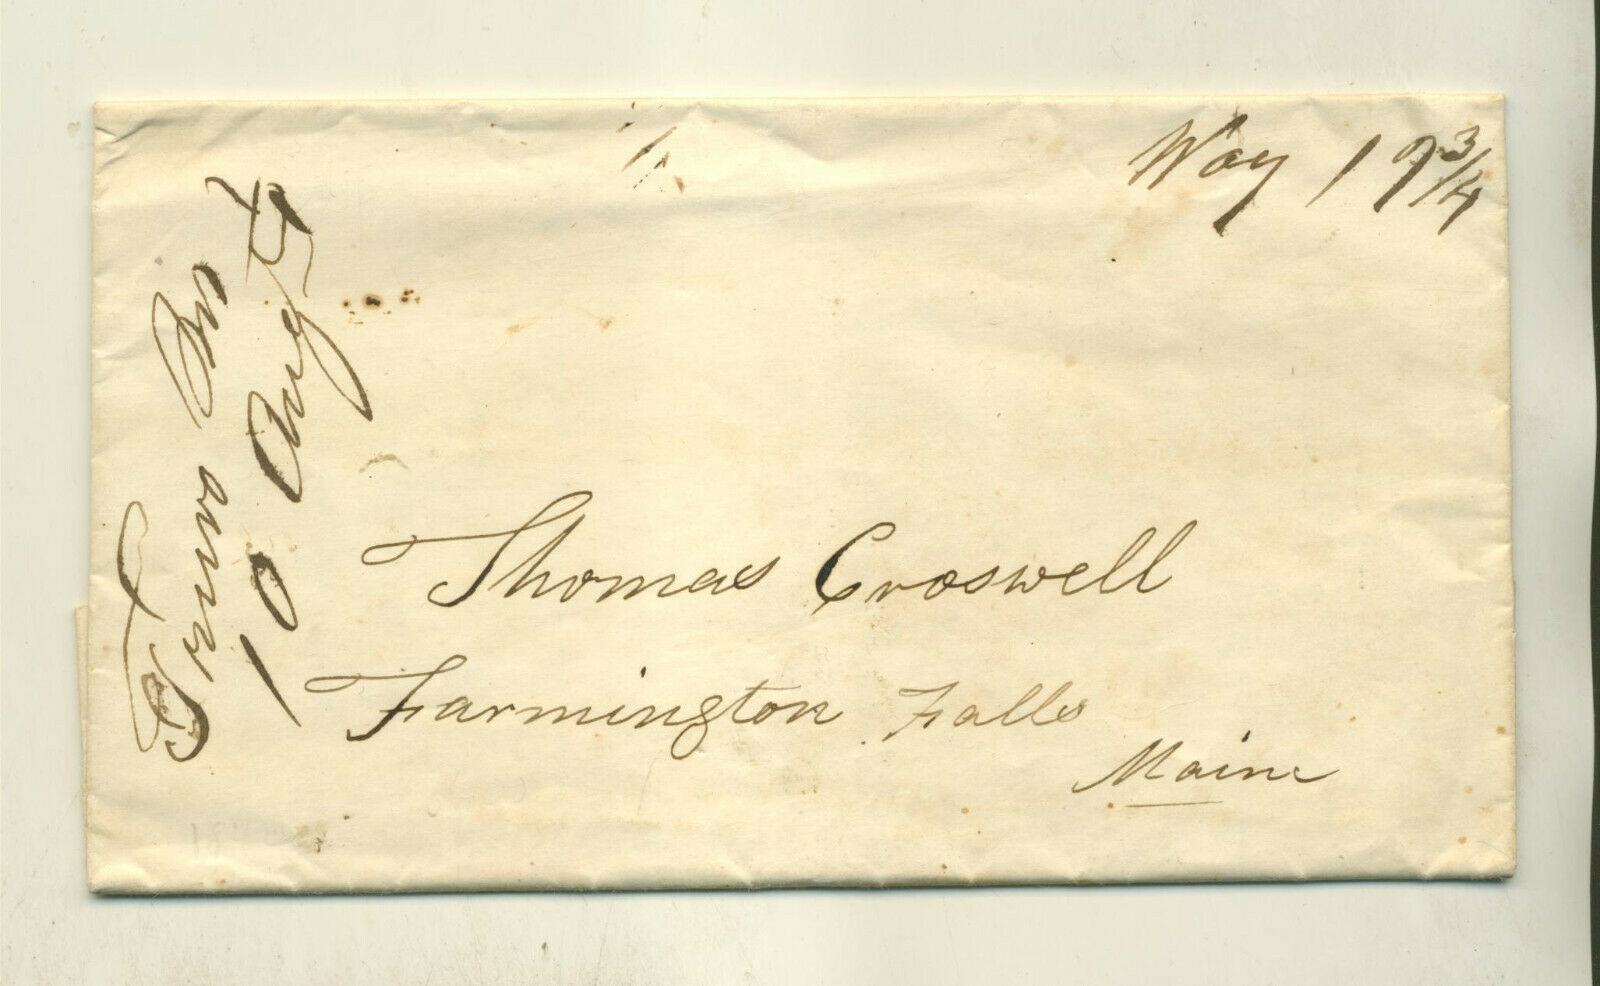 Way 19 3/4
Truro Ms
10 Augt
Thomas Croswell
Farmington Falls
Maine